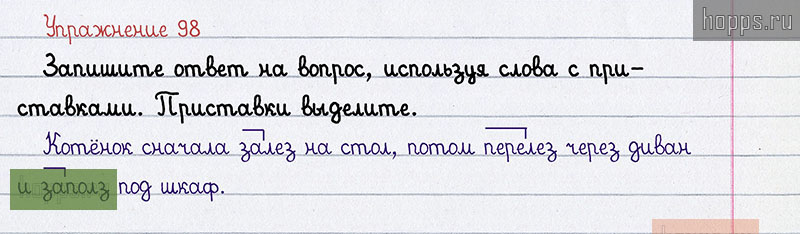 hopps.ru
Упражнение 98
Запишите ответ на вопрос, используя слова с при-
ставками. Приставки выделите.
Котёнок сначала залез на стол, потом перелез через диван
и заполз под шкаф.